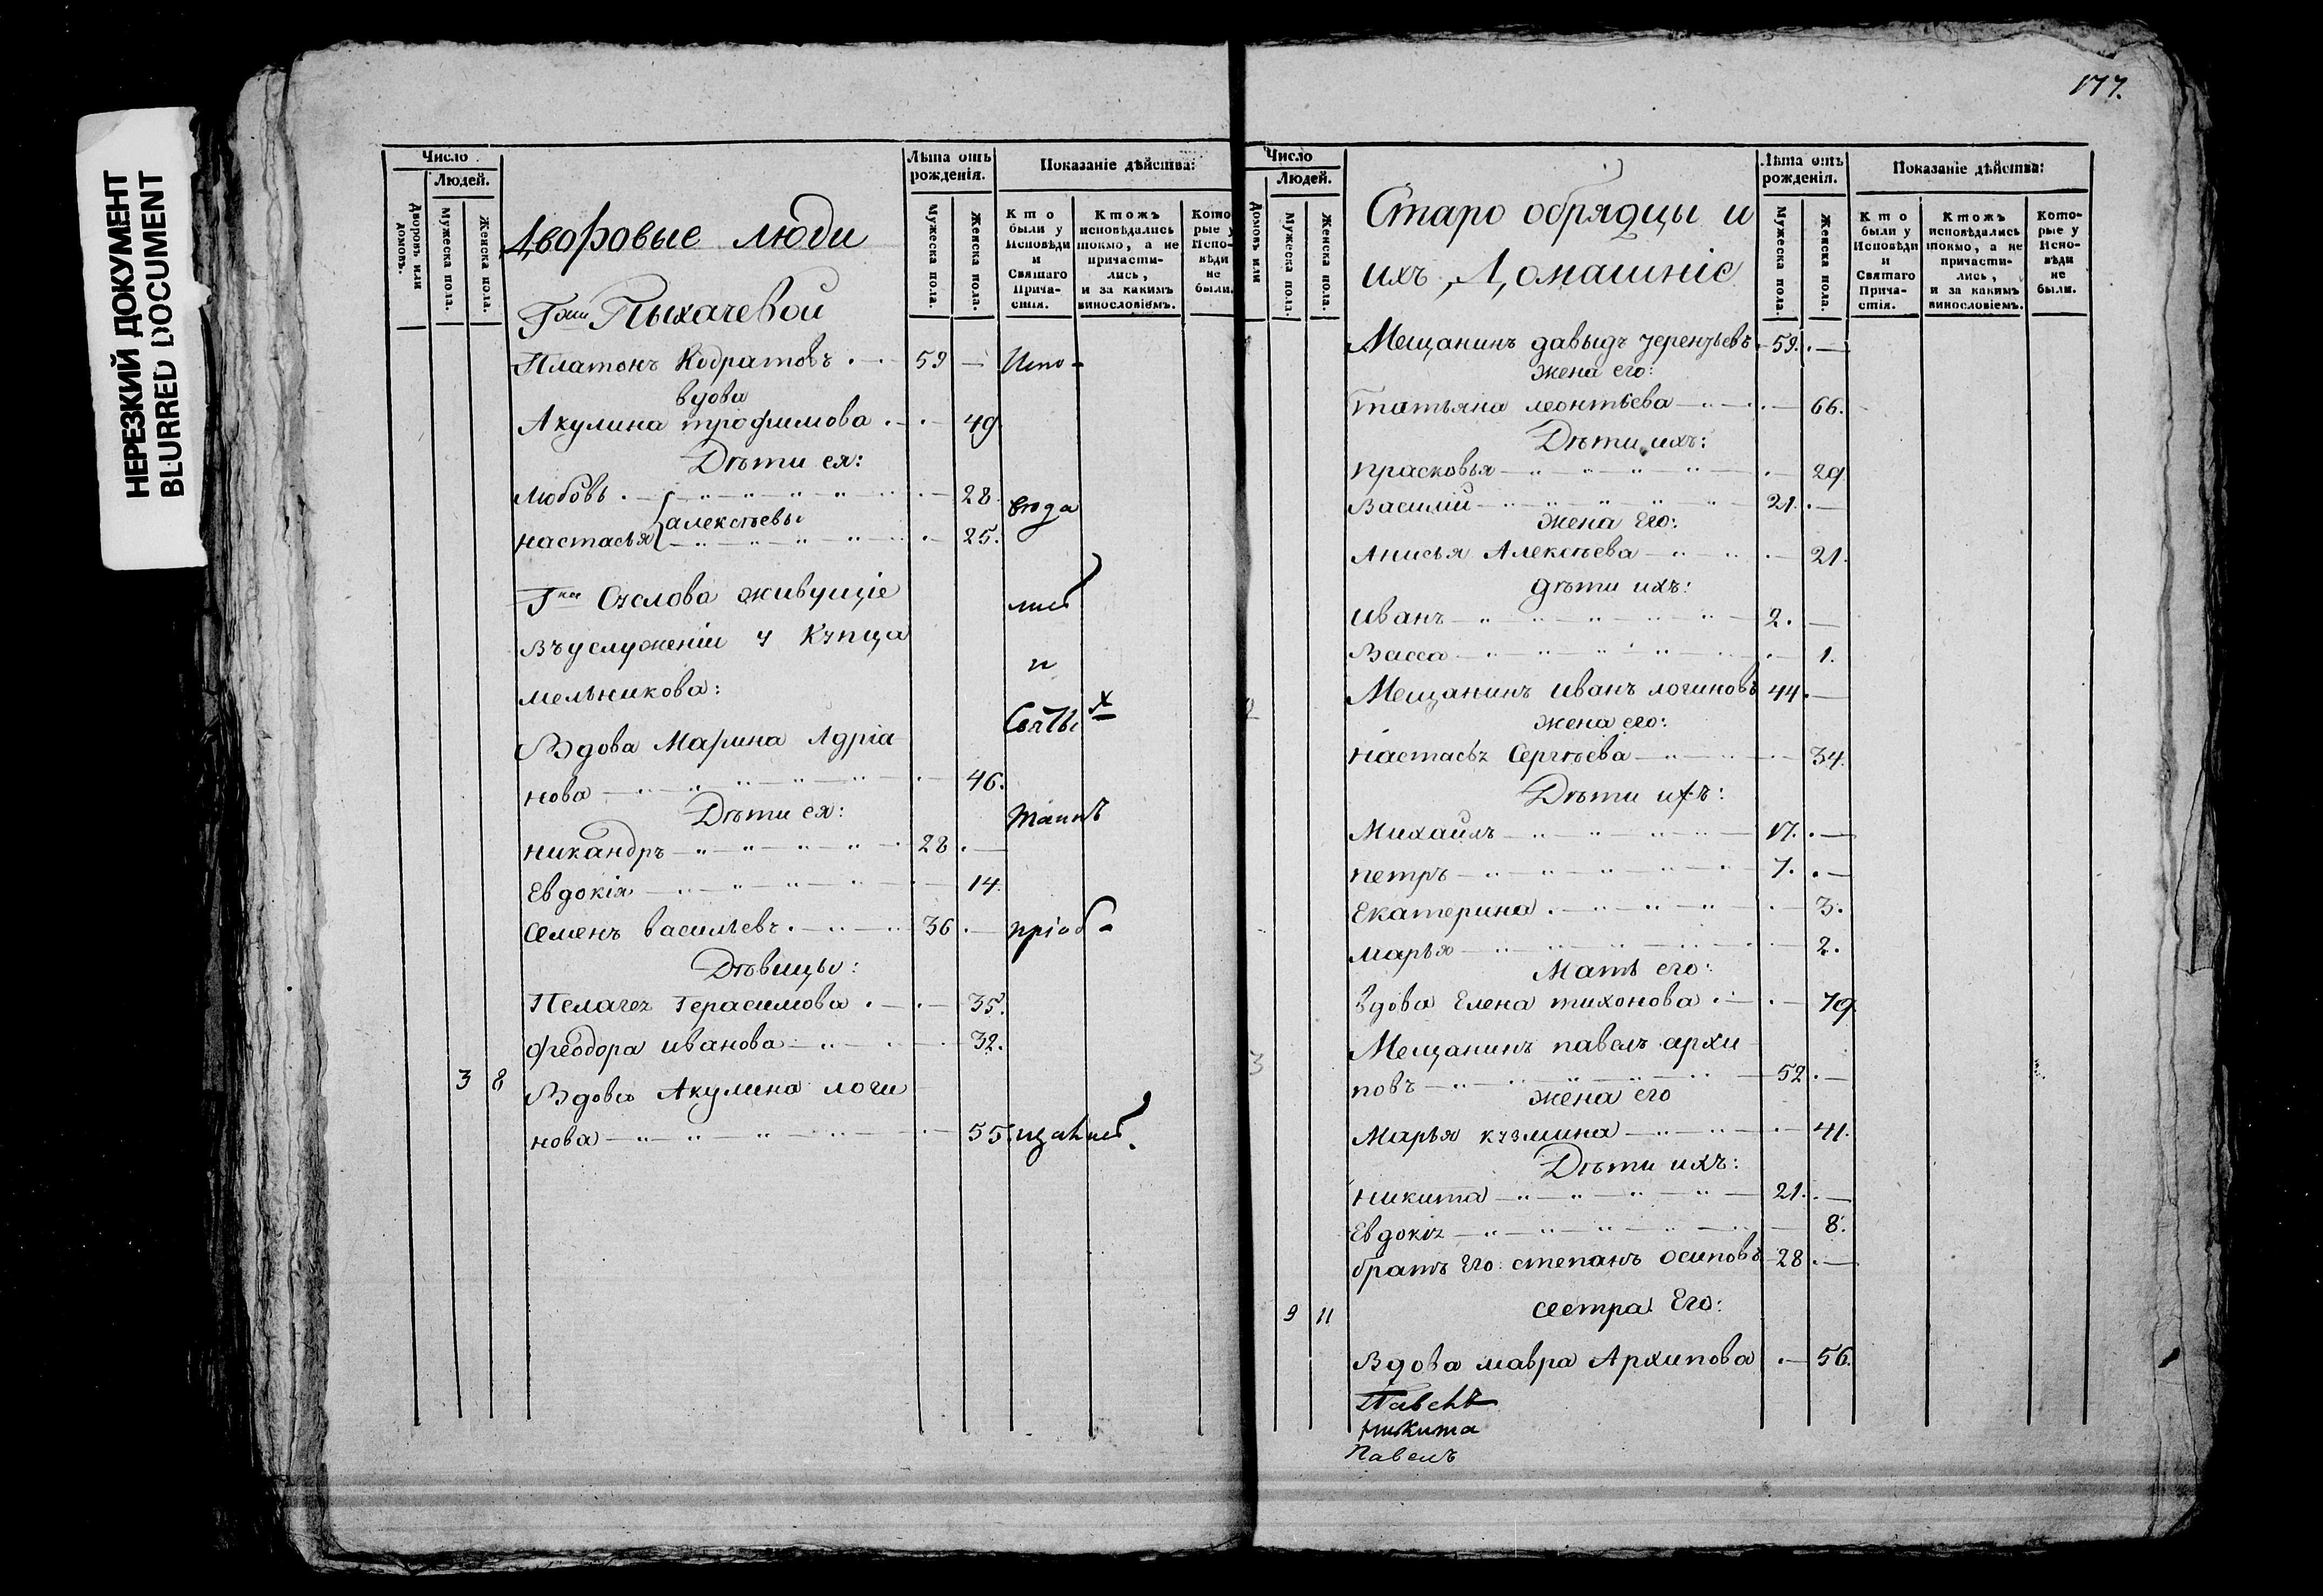 НЕРЕЗКИЙ ДОКУМЕНТ
BLURRED DOCUMENT
Число
Людей.
Дворовъ или домовъ.
Мужеска пола.
Женска пола.
Лѣта отъ рожденія.
Мужеска пола.
Женска пола.
Показаніе дѣйства:
Кто были у Исповѣди и Святаго Причастія.
Ктожъ исповѣдались токмо, а не причастились, и за какимъ винословіемъ.
Которые у Исповѣди не были.
Дворовые люди
Гжи Пыхачевой
Платонъ Кодратовъ 59 — Испо-
вдова
Акулина трофимова 49
Дѣти ея:
Любовь 28 вѣда
алексѣевы
настасья 25.
Гна живущіе лись
въуслуженіи у Купца и
мельникова:
Святыхъ
Вдова Марина Адріа
нова 46.
Дѣти ея: Таинъ
никандръ 28 . —
Евдокія 14.
семенъ васильевъ 36 . — пріоб-
Дѣвицы:
Пелагея Герасимова 35.
Феодора иванова 32.
3 8 Вдова Акулина логи
нова 55. щались.
177.
Число
Людей.
Домовъ или
Мужеска пола.
Женска пола.
Лѣта отъ рожденія.
Мужеска пола.
Женска пола.
Показаніе дѣйства:
Кто были у Исповѣди и Святаго Причастія.
Ктожъ исповѣдались токмо, а не причастились, и за какимъ винословіемъ.
Которые у Исповѣди не были.
Старо обрядцы и
ихъ Домашніе
Мещанинъ давыдъ терентьевъ 59. —
жена его:
татьяна леонтьева 66.
Дѣти ихъ:
прасковья 29
Василій 21. —
жена Его:
Анисья Алексѣева 21.
дѣти ихъ:
иванъ 2. —
Васса 1.
2 Мещанинъ иванъ логиновъ 44. —
жена его:
настасья Сергѣева 34.
Дѣти ихъ:
Михаилъ 17. —
петръ 7. —
Екатерина 3.
марья 2.
Мать его:
вдова Елена тихонова 79.
3 Мещанинъ павелъ архи
повъ 52. —
жена его
Марья кузмина 41.
Дѣти ихъ:
никита 21. —
Евдокія 8.
братъ Его: степанъ осиповъ 28. —
9 11 сестра Его:
Вдова мавра Архипова 56.
Павелъ
никита
Павелъ